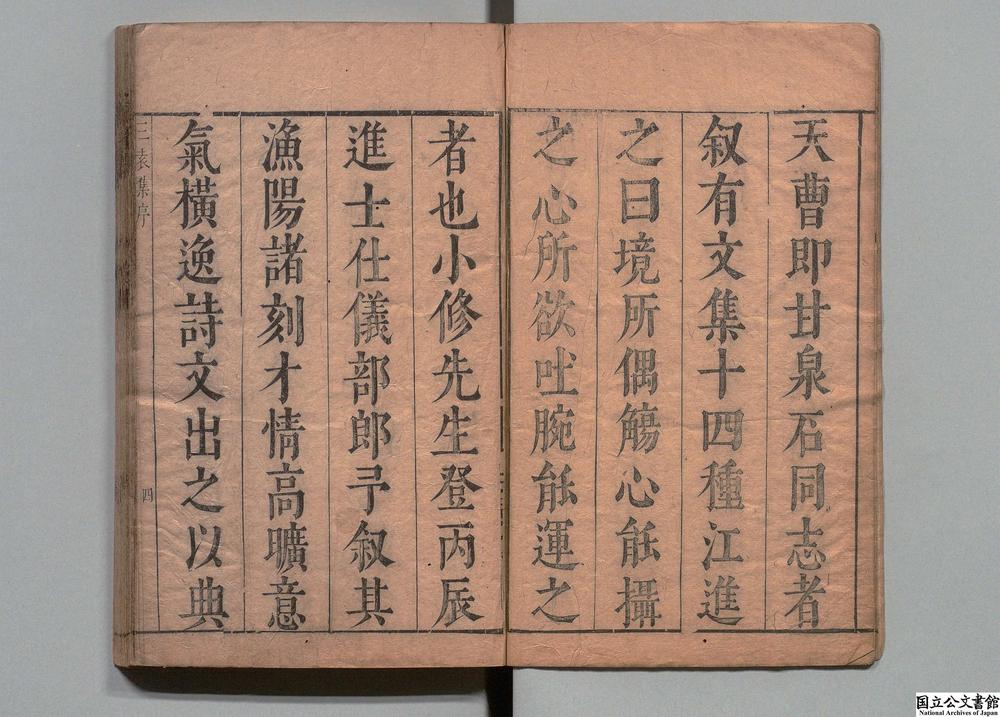 天曹即甘泉石同志者
叙有文集十四種江進
之曰境所偶觴心能攝
之心所欲吐腕能運之
者也小修先生登丙辰
進士仕儀部郎予叙其
漁陽諸刻才情高曠意
氣橫逸詩文出之以典
三袁集序
四
国立公文書館
National Archives of Japan